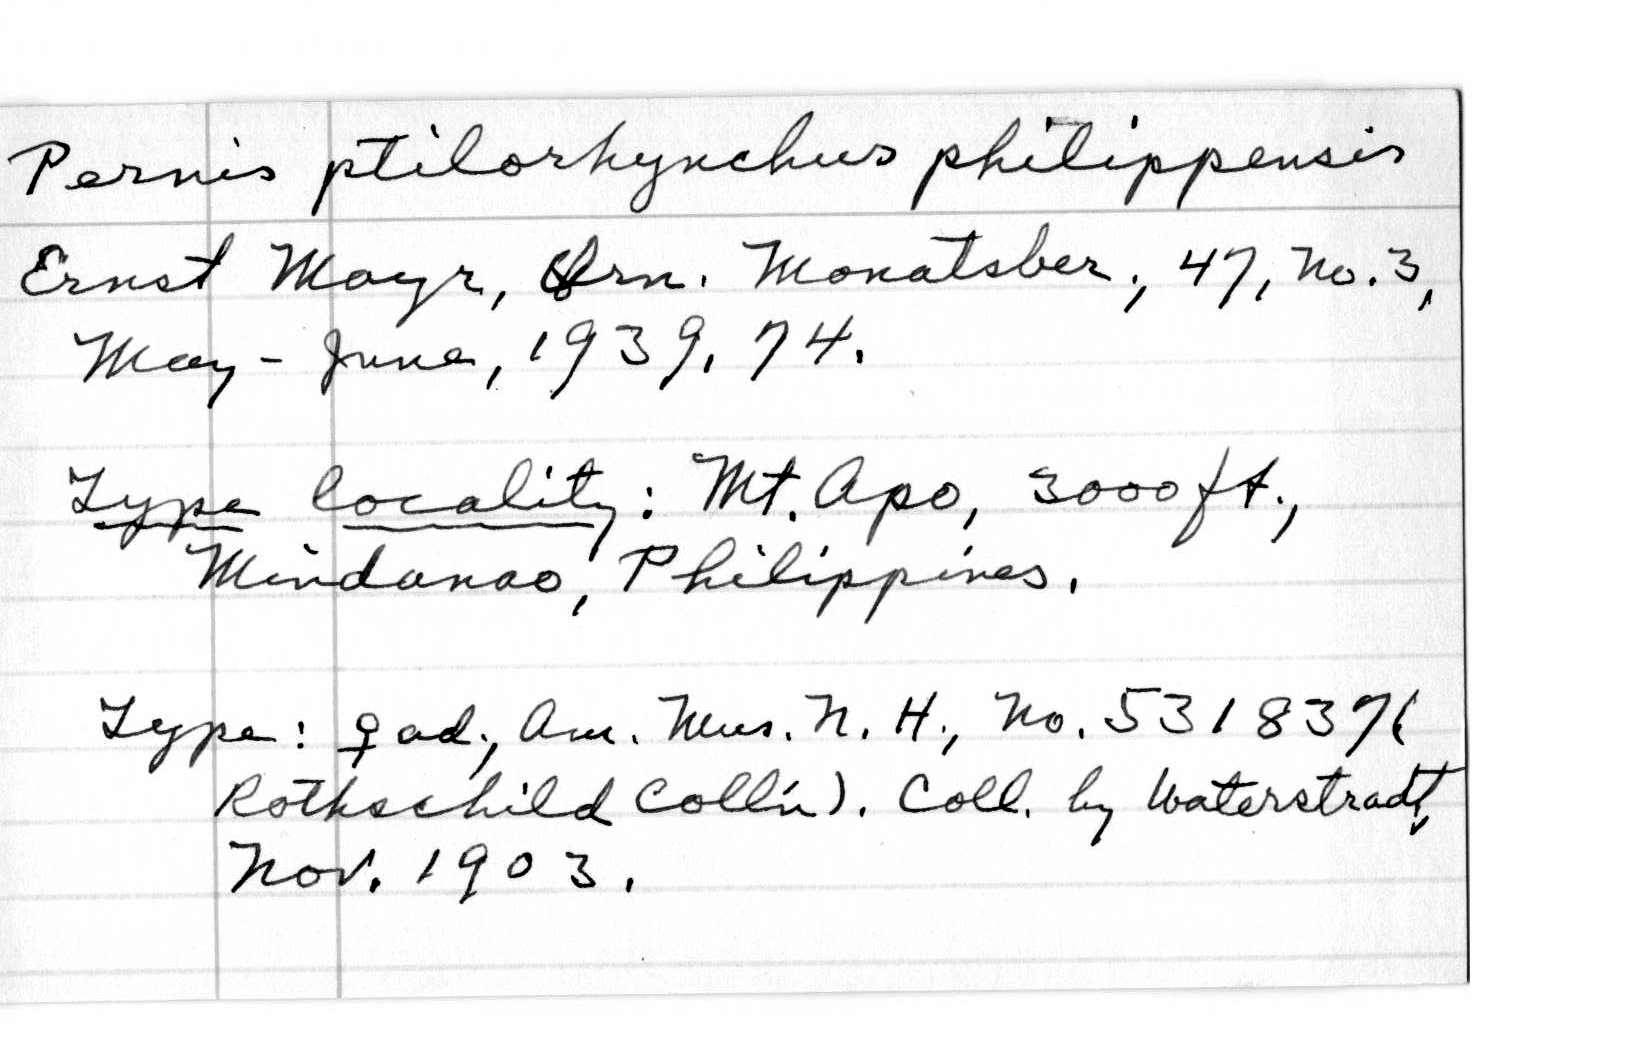 Pernis ptilorhynchus philippensis
Ernst Mayr, Orn. Monatsber., 47, No. 3,
May - June, 1939, 74.
Type locality: Mt. Apo, 3000 ft.,
Mindanao, Philippines.
Type: ♀ ad., Am. Mus. N. H., No. 531837 (
Rothschild Coll'n). Coll. by Waterstradt,
Nov. 1903.